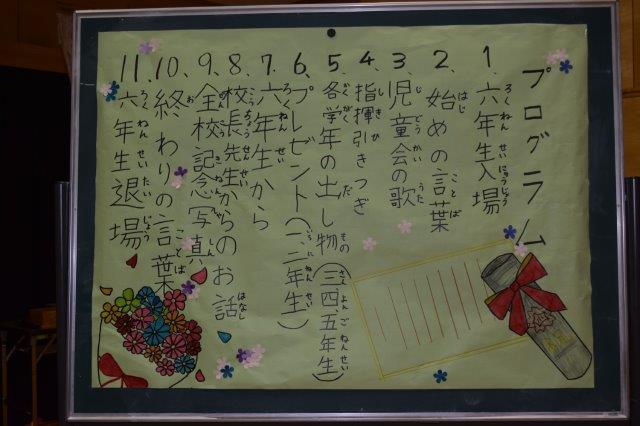 プログラム
1、六年生入場
2、始めの言葉
3、児童会の歌
4、指揮引きつぎ
5、各学年の出し物(三、四、五年生)
6、プレゼント(一、二年生)
7、六年生から
8、校長先生からのお話
9、全校記念写真
10、終わりの言葉
11、六年生退場